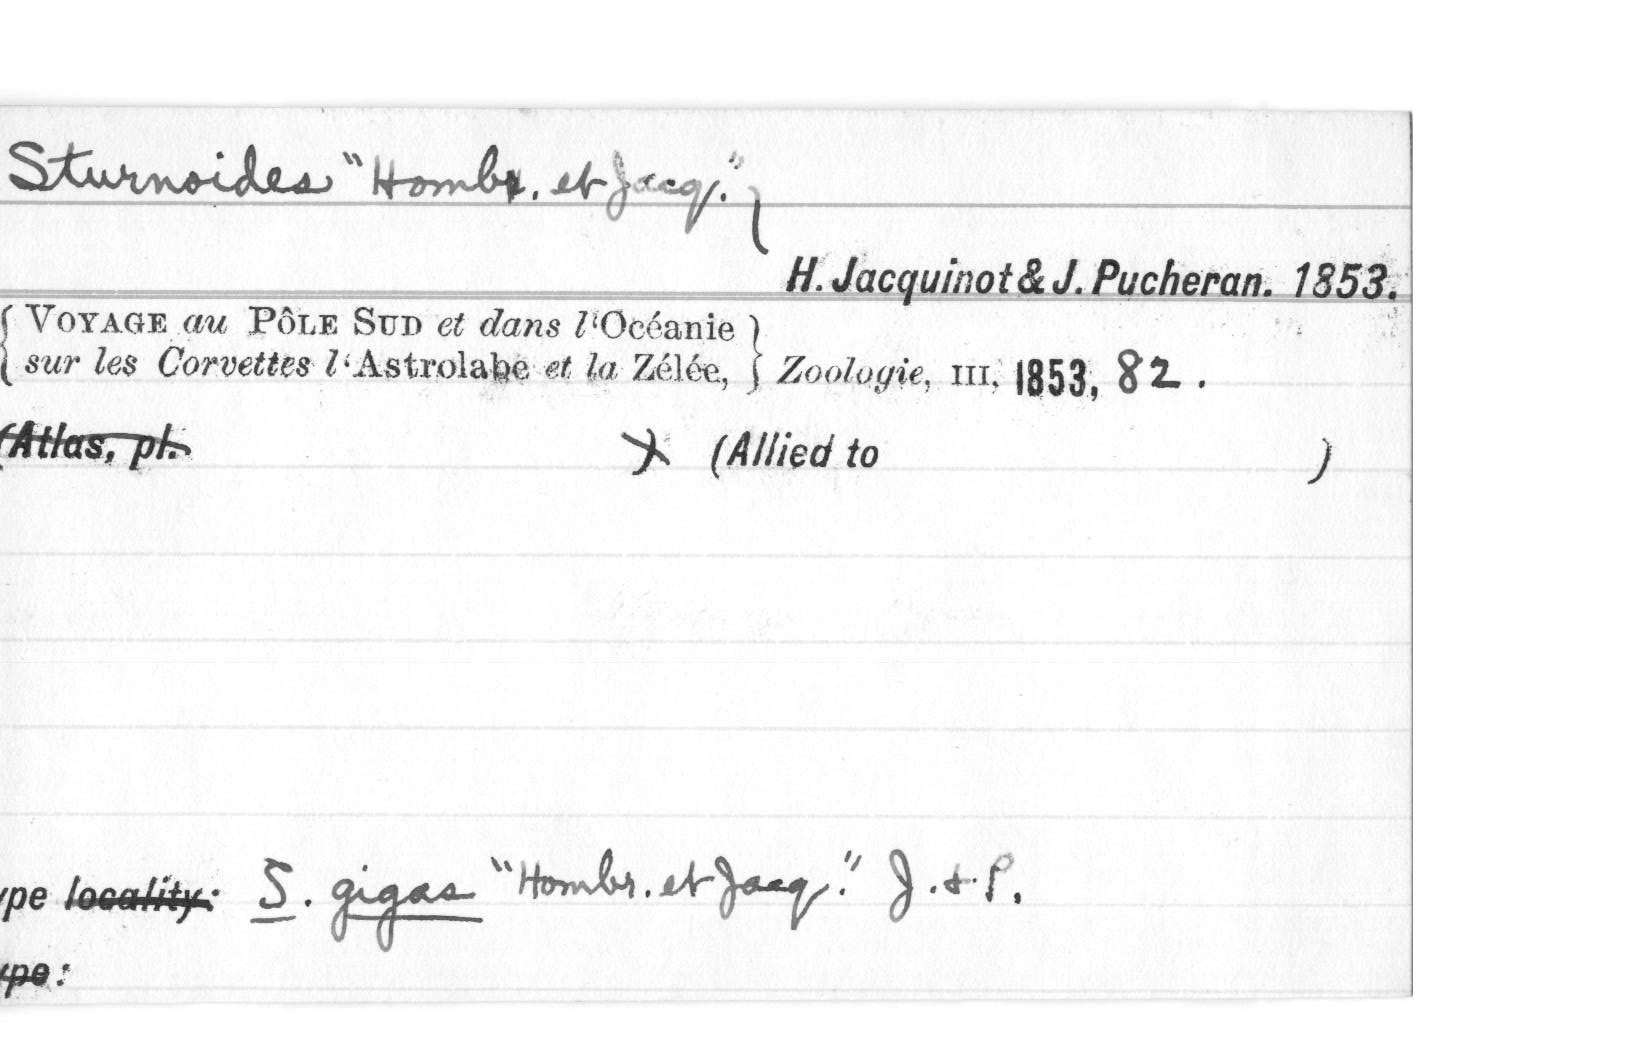 Sturnoides "Hombr. et Jacq."
H. Jacquinot & J. Pucheran. 1853.
{ VOYAGE au PÔLE SUD et dans l'Océanie }
{ sur les Corvettes l'Astrolabe et la Zélée, } Zoologie, III, 1853, 82.
(Atlas, pl. ) (Allied to )
ype locality: S. gigas "Hombr. et Jacq." J. & P.
ype: